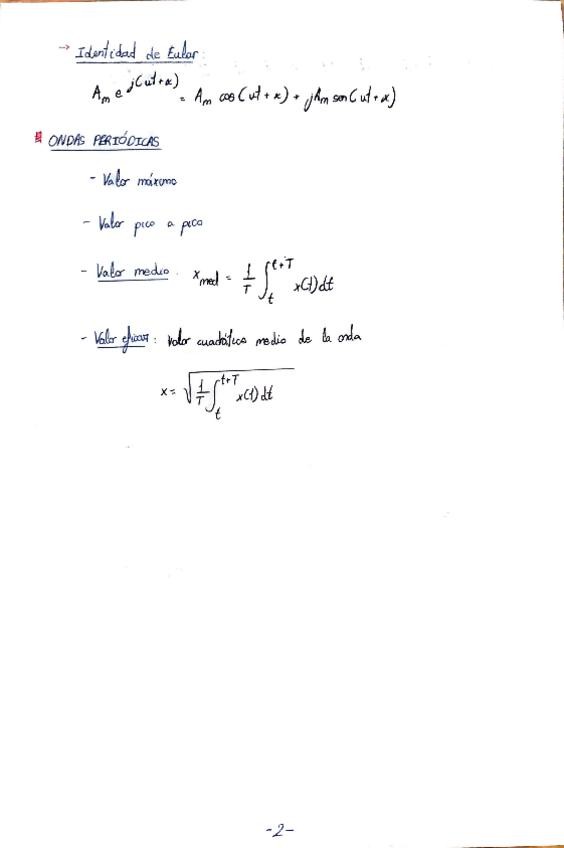 → Identidad de Euler:
A_m e^{j(ωt+α)} = A_m cos(ωt+α) + jA_m sen(ωt+α)
ONDAS PERIÓDICAS
- Valor máximo
- Valor pico a pico
- Valor medio: x_med = 1/T ∫_t^{t+T} x(t)dt
- Valor eficaz: Valor cuadrático medio de la onda
x = √(1/T ∫_t^{t+T} x(t)dt)
-2-